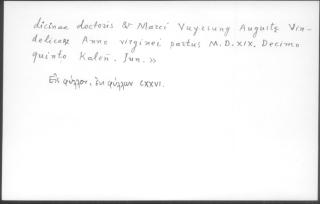 dicinae doctoris & Marci Vuyrsung Augustę Vin-
delicorz Anno virginei partus M.D.XIX. Decimo
quinto Kaleñ. Jun. »
Εἰς φύλλον, ἐκ φύλλων CXXVI.